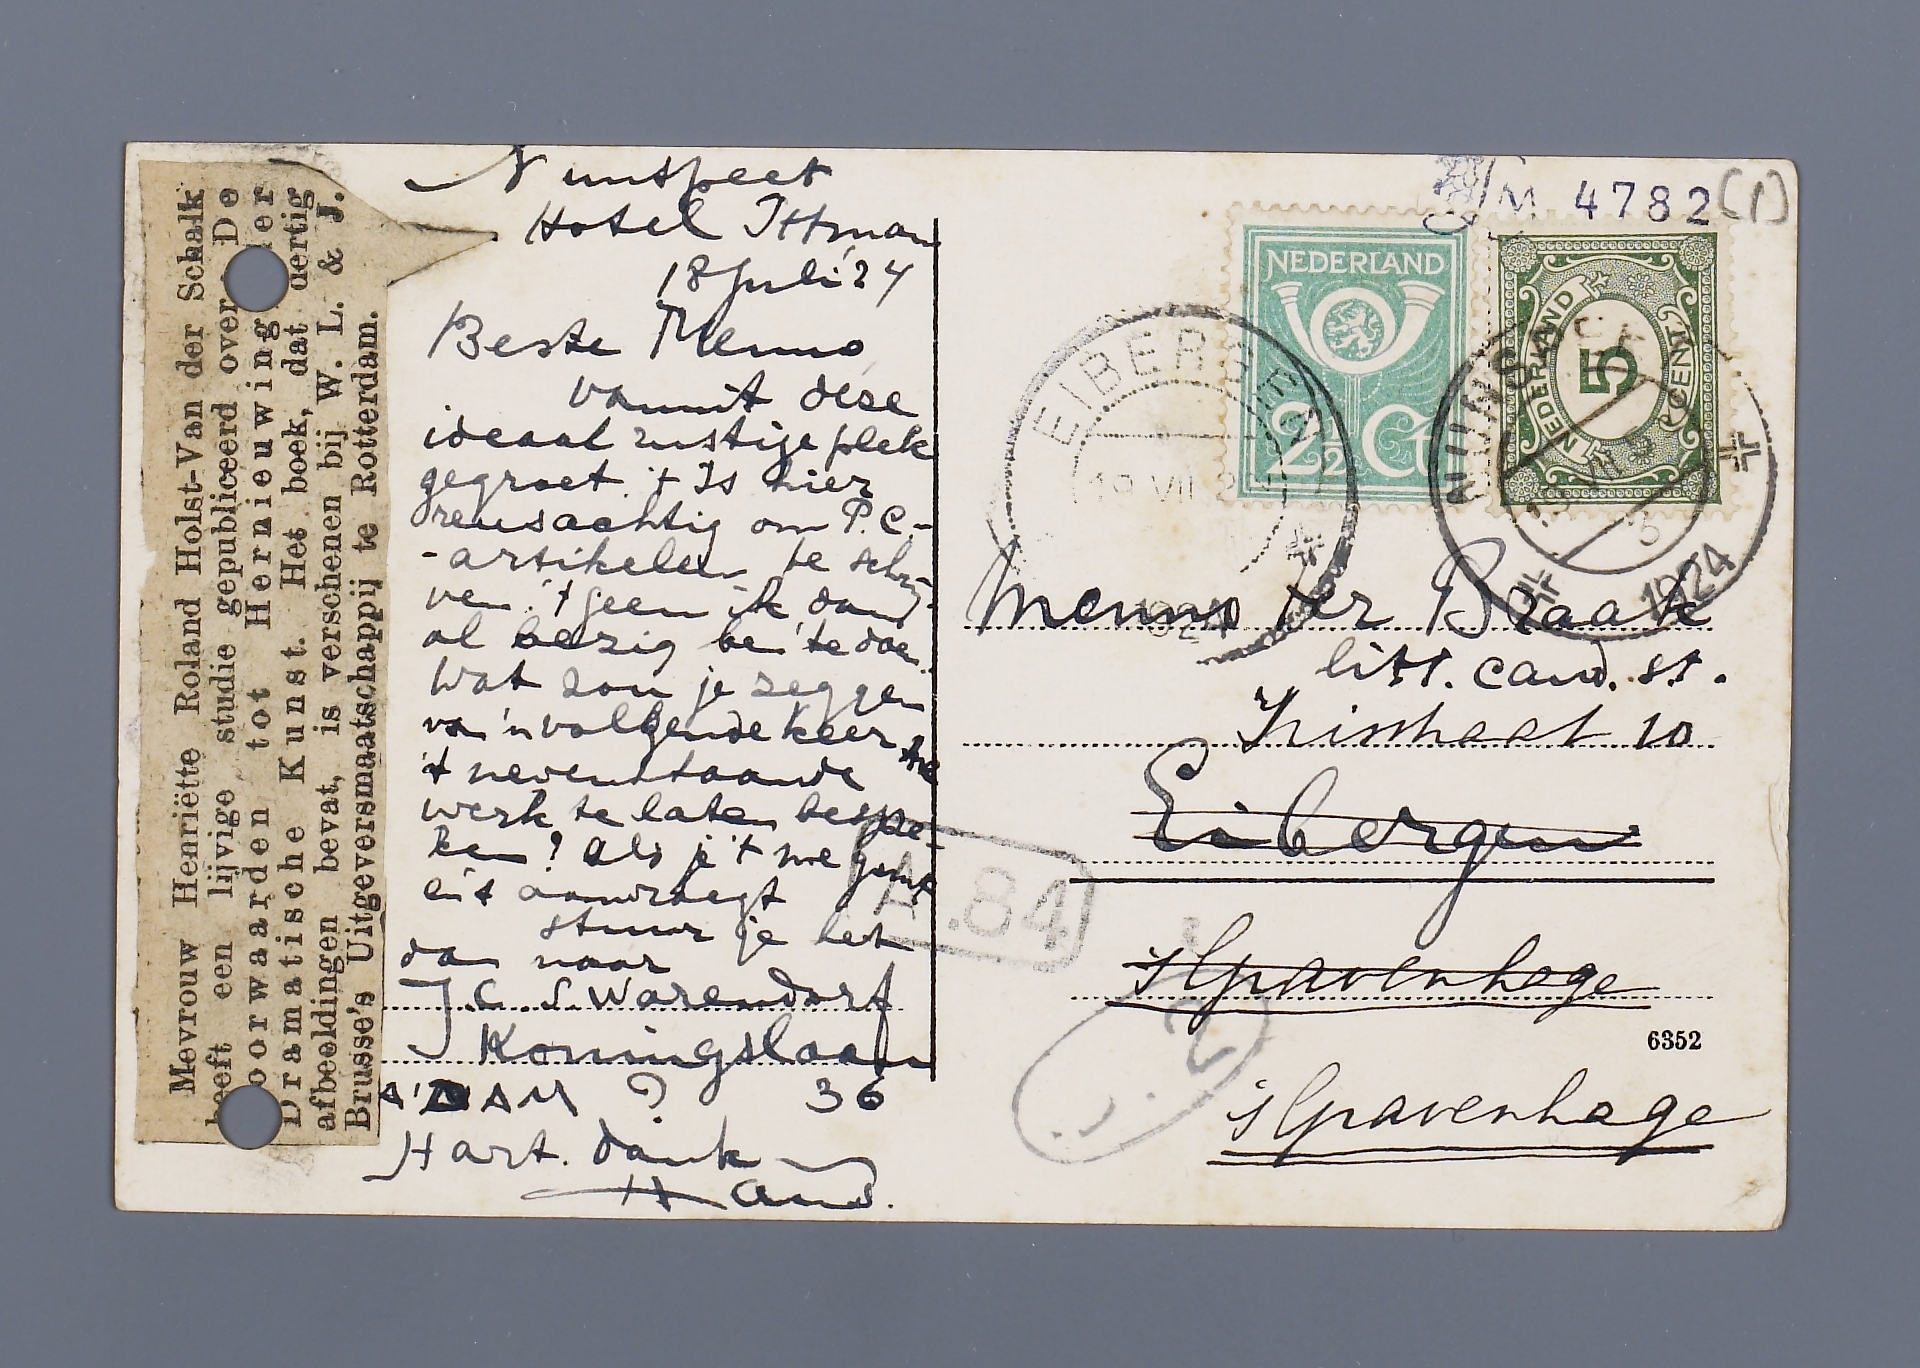 Mevrouw Henriëtte Roland Holst-Van der Schalk
heeft een lijvige studie gepubliceerd over De
oorwaarden tot Hernieuwing der
Dramatische Kunst. Het boek, dat dertig
afbeeldingen bevat, is verschenen bij W. L. & J.
Brusse's Uitgeversmaatschappij te Rotterdam.
Nunspeet
Hotel Ittman
18 Juli '24
Beste Menno
vanuit deze
ideaal rustige plek
gegroet. 't Is hier
reusachtig om P.C.-
-artikelen te schrij-
ven. 't geen ik dan
al bezig ben te doen.
Wat zou je zeggen
van 'n volgende keer
't nevenstaande
werk te laten bespre-
ken? Als je 't me
eis aanvraagt
stuur je het
dan naar
J. C. S. Warendorf
Koningslaan
A'DAM ? 36
Hart. dank
Hans.
M 4782 (1)
NEDERLAND
2½ Ct
NEDERLAND
5
CENT
EIBERGEN
19 VII 2
1924
NUNSPEET
3
1924
Menno ter Braak
litt. cand. st.
Eibergen
's Gravenhage
6352
's Gravenhage
A.84